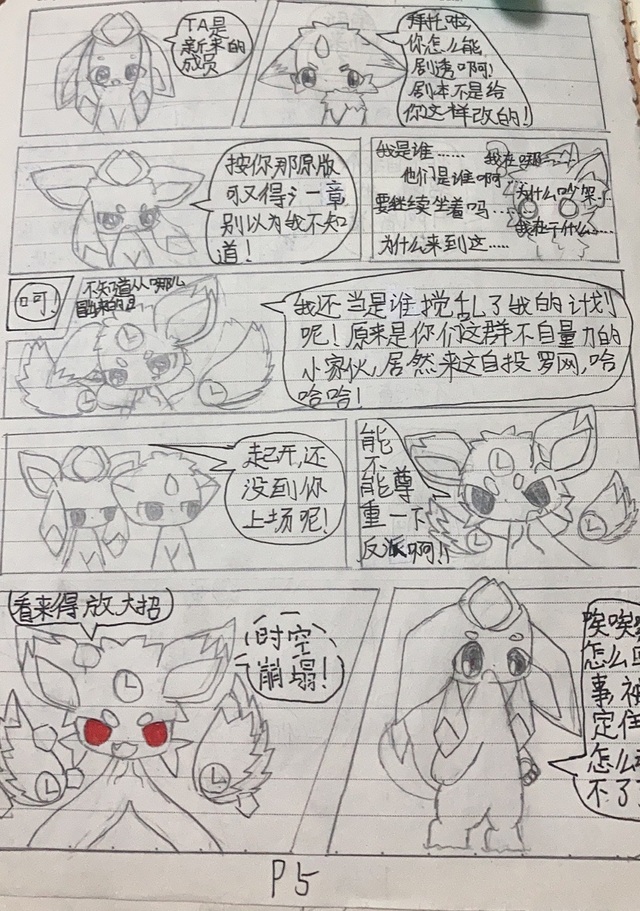 TA是
新来的
成员
拜托啦,
你怎么能
剧透啊!
剧本不是给
你这样改的!
按你那原版
可又得 一章
别以为我不知
道!
我是谁……
我在哪
他们是谁啊
为什么吵架
要继续坐着吗…
我在干什么…
为什么来到这……
呵!
不知道从哪儿
冒出来的
我还当是谁搅乱了我的计划
呢!原来是你们这群不自量力的
小家伙,居然来这自投罗网,哈
哈哈!
起开,还
没到你
上场呢!
能
不
能尊
重一下
反派啊!!
看来得放大招
时空
崩塌!
唉唉
怎么回
事被
定住
怎么
不了
P5